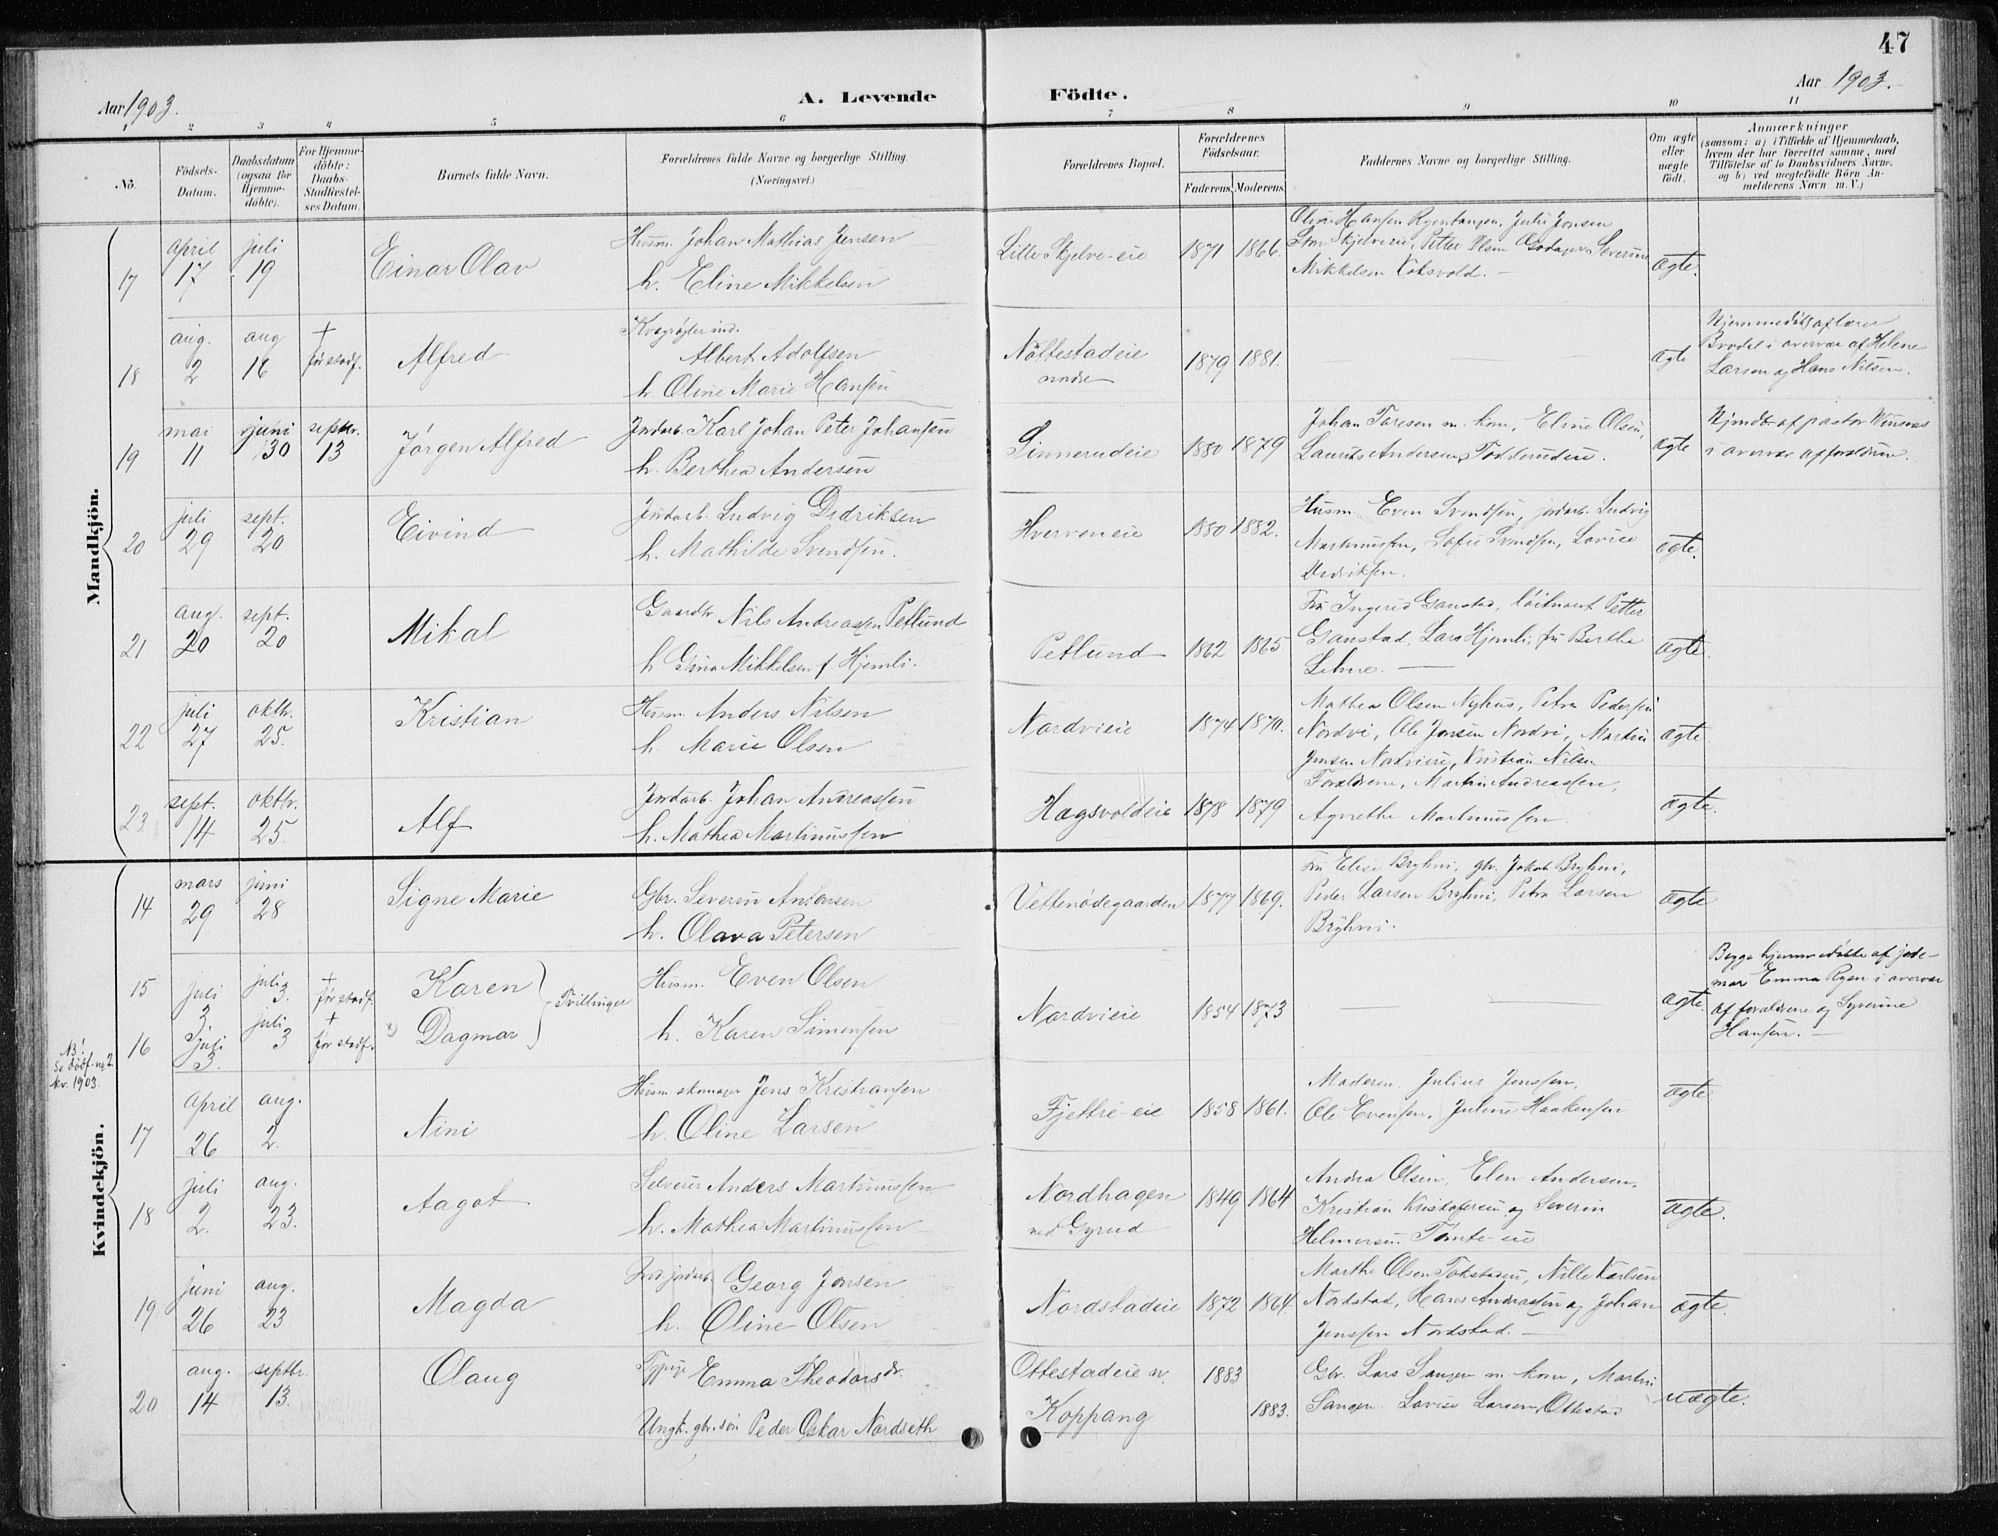 47
Aar 1903.
A. Levende
Födte.
Aar 1903.
1
2
3
4
5
6
7
8
9
10
11
No.
Födsels-Datum.
Daabsdatum (ogsaa for Hjemme-döbte).
For Hjemme-döbte: Daabs-Stadfæstel-ses Datum.
Barnets fulde Navn.
Forældrenes fulde Navne og borgerlige Stilling. (Næringsvei.)
Forældrenes Bopæl.
Forældrenes Födselsaar.
Faderens.
Moderens.
Faddernes Navne og borgerlige Stilling.
Om ægte eller uægte födt.
Anmærkninger
(saasom: a) i Tilfælde af Hjemmedaab, hvem der har forrettet samme, med Tilföielse af to Daabsvidners Navne. og b) ved uægtefödte Börn An-melderens Navn m. V.)
Mandkjön.
17
april 17
juli 19
Einar Olav
Husm. Johan Mathias Jensen
h. Eline Mikkelsen
Lille Skjelve-eie
1871
1866.
Hansen Julie Jonsen
Petter Olsen Severine
Mikkelsen
ægte.
18
aug. 2
aug 16
+ før stadf.
Alfred
Albert Adolfsen
h. Oline Marie Hansen
Nøttestadeie
nordre
1879
1881.
ægte
Hjemmedøbt af lærer
Brodal i overvær af Helene
Larsen og Hans Nilsen.
19
mai 11
juni 30
septbr. 13
Jørgen Alfred
Jordarb. Karl Johan Peter Johansen
h. Berthea Andersen
Ginnerudeie
1880
1879
Johan Taresen m. kone, Eline Olsen,
Laurits Andersen
ægte
Hjmdbt af pastor
i overvær af forældrene.
20
juli 29
sept. 20
Eivind
Jordarb. Ludvig Didriksen
h. Mathilde Svendsen.
Hverveneie
1880
1882.
Husm. Even Svendsen, jordarb. Ludvig
Martinussen, Sofie Svendsen, Lovise
Didriksen.
ægte.
21
aug. 20
sept. 20
Mikal
Gaardbr. Nils Andreassen Petlund
h. Gina Mikkelsen f. Hjemli.
Petlund
1862
1865
Fru Ingerid Ganstad, løitnant Petter
Ganstad, Lars Hjemli, fru Berthe
Lehne.
ægte.
22
juli 27
oktbr. 25.
Kristian
Husm. Anders Nilsen
h. Marie Olsen
Nordvieie
1874
1870.
Mathea Olsen Nyhus, Petra Pedersen
Nordvi, Ole Jensen Nordvi, Martin
Jensen Nordvieie, Kristian Nilsen
ægte.
23
sept. 14
oktbr. 25.
Alf
Jordarb. Johan Andreassen
h. Mathea Martinussen
Hagsvoldeie
1878
1879
Forældrene, Martin Andreassen,
Agnethe Martinussen.
ægte.
Kvindekjön.
14
mars 29
juni 28
Signe Marie
Gbr. Severin Antonsen
h. Olava Petersen
Vettenødegaarden
1877
1869.
Fru Elise Bryhni, gbr. Jakob Bryhni,
Peder Larsen Bryhni, Petra Larsen
Bryhni.
ægte
15
juli 3
juli 3.
+ før stadf.
Karen
16
juli 3.
juli 3
+ før stadf.
Dagmar
Tvillinger
NB!
Se dødf. no 2
kv. 1903.
Husm. Even Olsen
h. Karen Simensen
Nordvieie
1854
1873
ægte.
Begge hjemmedøbte af jorde-
mor Emma Ryen i overvær
af forældrene og Syverine
Hansen.
17
april 26
aug. 2.
Nini
Husm skomager Jens Kristiansen
h. Oline Larsen
Fjetre-eie
1858
1861.
Moderen, Julius Jenssen,
Ole Evensen, Juline Haakensen
ægte
18
juli 2.
aug. 23.
Aagot
Selveier Anders Martinussen
h. Mathea Martinussen
Nordhagen
ned Gyrud
1849
1864
Andrea Olsen, Elen Andersen,
Kristian Kristofersen og Severin
Helmersen Tomte-eie
ægte.
19
juni 26
aug. 23
Magda
jordarb. Georg Jonsen
h. Oline Olsen
Nordstadeie
1872
1864.
Marthe Olsen Tokstadeie, Nille Karlsen
Nordstad, Hans Andreassen og Johan
Jenssen Nordstad.
ægte.
20
aug. 14
septbr. 13.
Olaug
Emma Theodorsdr.
Ungk. gbr.søn Peder Oskar Nordseth
Ottestadeie n.
Koppang
1883
1883.
Gbr. Lars Sangen m. kone, Martin
Sangen. Lovise Larsen, Ottestad
uægte.